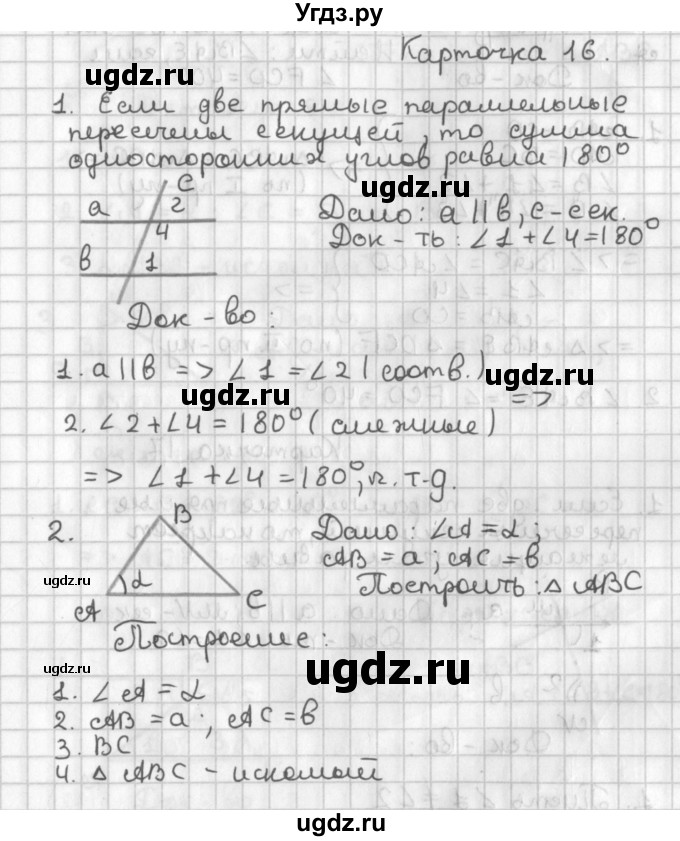 Угдз.ру
Карточка 16.
ugdz.ru
1. Если две прямые параллельные
пересечены секущей, то сумма
односторонних углов равна 180°
ugdz.ru
c
a 2
4
в 1
Дано: a || в, c - сек.
Док - ть: ∠1 + ∠4 = 180°
Док - во:
1. a || в => ∠1 = ∠2 (соотв.)
=>
ugdz.ru
2. ∠2 + ∠4 = 180° (смежные)
=> ∠1 + ∠4 = 180°, ч. т. д.
2.
B
α
A
C
Дано: ∠A = α;
AB = a; AC = в
Построить: △ ABC
ugdz.ru
Построение:
ugdz.ru
ugdz.ru
1. ∠A = α
2. AB = a; AC = в
3. BC
4. △ ABC - искомый
ugdz.ru
ugdz.ru